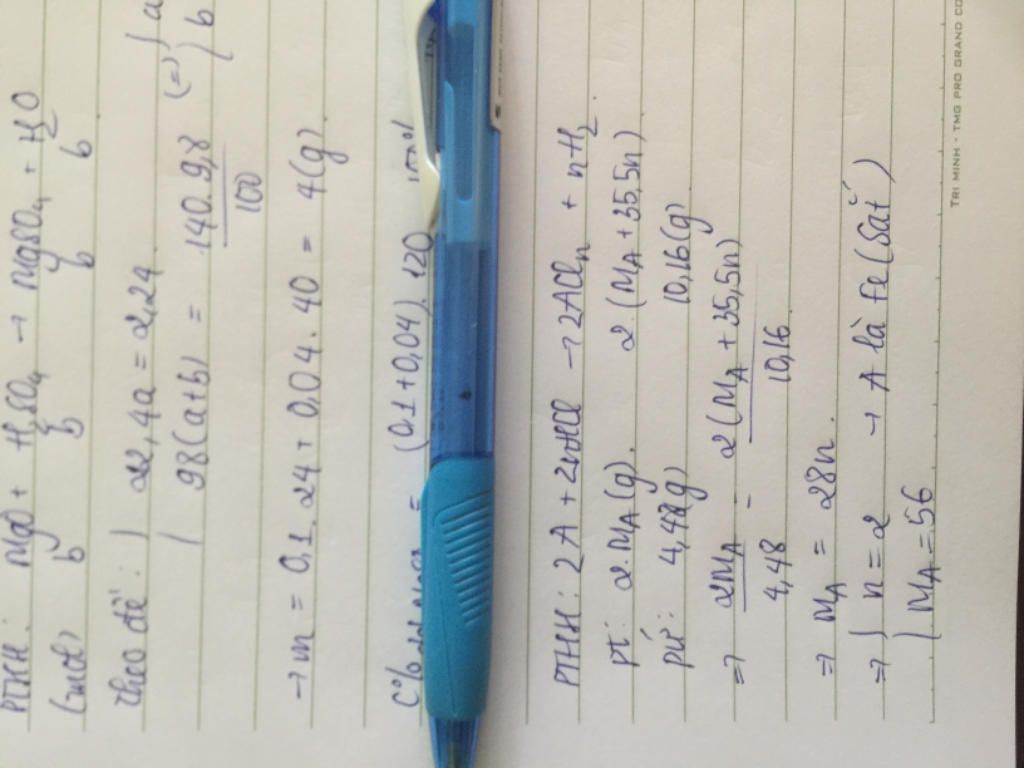 PTHH: MgO + H2SO4 → MgSO4 + H2O
(mol) b b b b
Theo đề: { 22,4a = 2,24 (=) { a
98(a+b) = 140.9,8 b
100
→ m = 0,1.24 + 0,04.40 = 4(g)
C% = (0,1+0,04).120
PTHH: 2A + 2nHCl → 2ACln + nH2
pt: 2.MA(g) 2.(MA+35,5n)
pứ: 4,48(g) 10,16(g)
=> 2MA = 2(MA+35,5n)
4,48 10,16
=> MA = 28n.
=> { n = 2 → A là Fe (Sắt)
MA = 56
TRI MINH - TMG PRO GRAND CO